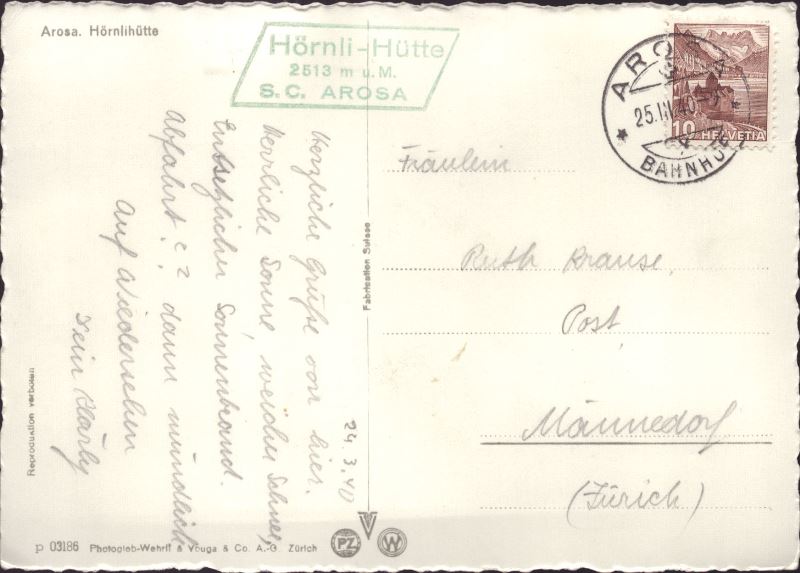 Arosa. Hörnlihütte
Hörnli-Hütte
2513 m u.M.
S.C. AROSA
AROSA
25.III.40
BAHNHOF
10 HELVETIA
24.3.40
Herzliche Grüße von hier.
Herrliche Sonne, weicher Schnee,
Entsetzlicher Sonnenbrand.
Abfahrt: c ? dann mündlich
Auf Wiedersehen
Dein
Fräulein
Ruth Krause,
Post,
Männedorf
(Zürich)
Fabrication Suisse
Reproduktion verboten
p 03186 Photoglob-Wehrli & Vouga & Co. A.-G. Zürich
PZ
W